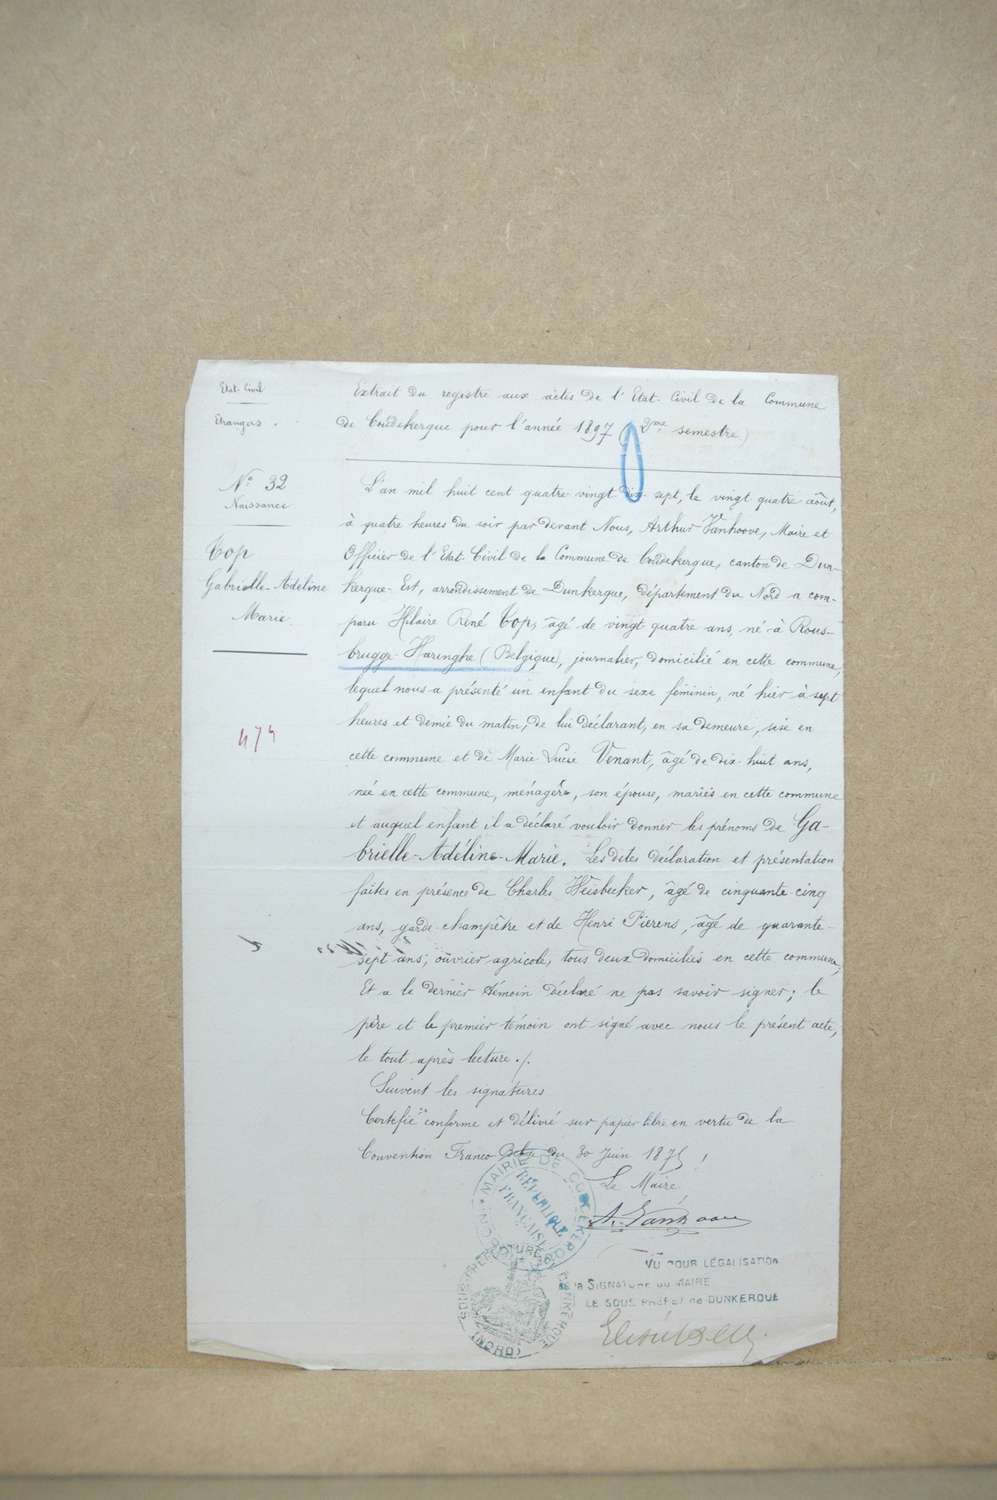 Etat-Civil
Etrangers.
N° 32
Naissance
Top
Gabrielle-Adeline
Marie
474
Extrait du registre aux actes de l'Etat-Civil de la Commune
de Coudekerque pour l'année 1897 (2me semestre)
L'an mil huit cent quatre vingt dix sept, le vingt quatre août,
à quatre heures du soir par devant Nous, Arthur Vanhoove, Maire et
Officier de l'Etat Civil de la Commune de Coudekerque, canton de Dun-
kerque-Est, arrondissement de Dunkerque, département du Nord a com-
paru Hilaire René Top, âgé de vingt quatre ans, né à Rous-
brugge-Haringhe (Belgique), journalier, domicilié en cette commune,
lequel nous a présenté un enfant du sexe féminin, né hier à sept
heures et demie du matin, de lui déclarant, en sa demeure, sise en
cette commune et de Marie Lucie Venant, âgé de dix-huit ans,
née en cette commune, ménagère, son épouse, mariés en cette commune
et auquel enfant il a déclaré vouloir donner les prénoms de Ga-
brielle-Adéline-Marie. Les dites déclaration et présentation
faites en présence de Charles Weisbecker, âgé de cinquante cinq
ans, garde-champêtre et de Henri Pierens, âgé de quarante-
sept ans, ouvrier agricole, tous deux domiciliés en cette commune,
Et a le dernier témoin déclaré ne pas savoir signer; le
père et le premier témoin ont signé avec nous le présent acte,
le tout après lecture ./.
Suivent les signatures
Certifié conforme et délivré sur papier libre en vertu de la
Convention Franco-Belge du 30 Juin 1875 !
Le Maire
A. Vanhoove
MAIRIE DE COUDEKERQUE
RÉPUBLIQUE
FRANÇAISE
SOUS-PREFECTURE DE DUNKERQUE
(NORD)
VU POUR LÉGALISATION
de la SIGNATURE du MAIRE
LE SOUS PRÉFET de DUNKERQUE